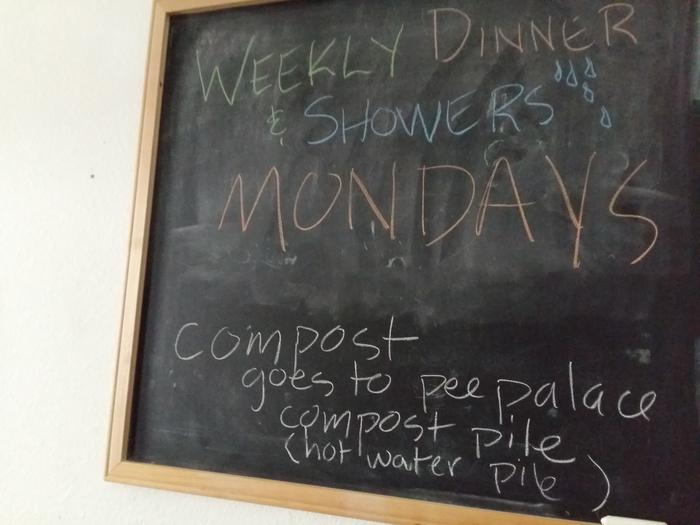 WEEKLY DINNER
& SHOWERS
MONDAYS
compost
goes to pee palace
compost pile
(hot water pile)